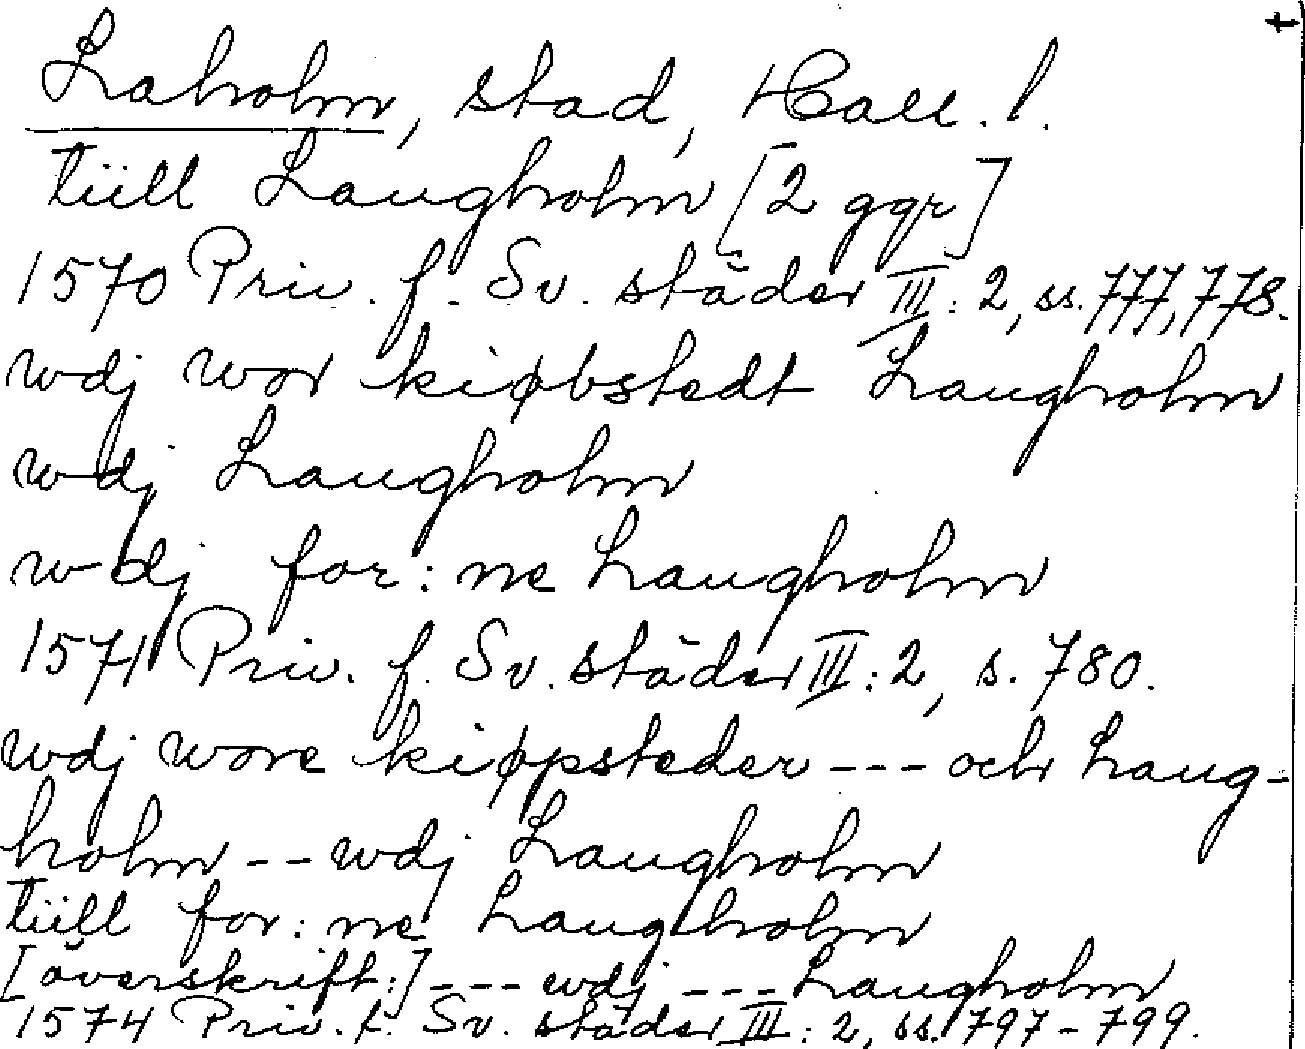 t
Laholm, stad, Hall. l.
tiill Laugholm [2 ggr]
1570 Priv. f. Sv. städer III: 2, ss. 777, 778.
wdj wor kiøbstedt Laugholm
wdj Laugholm
wdj for: ne Laugholm
1571 Priv. f. Sv. städer III: 2, s. 780.
wdj wore kiøpsteder --- och Laug-
holm -- wdj Laugholm
tiill for: ne Laugholm
[överskrift:] --- wdj --- Laugholm
1574 Priv. f. Sv. städer III: 2, ss. 797-799.